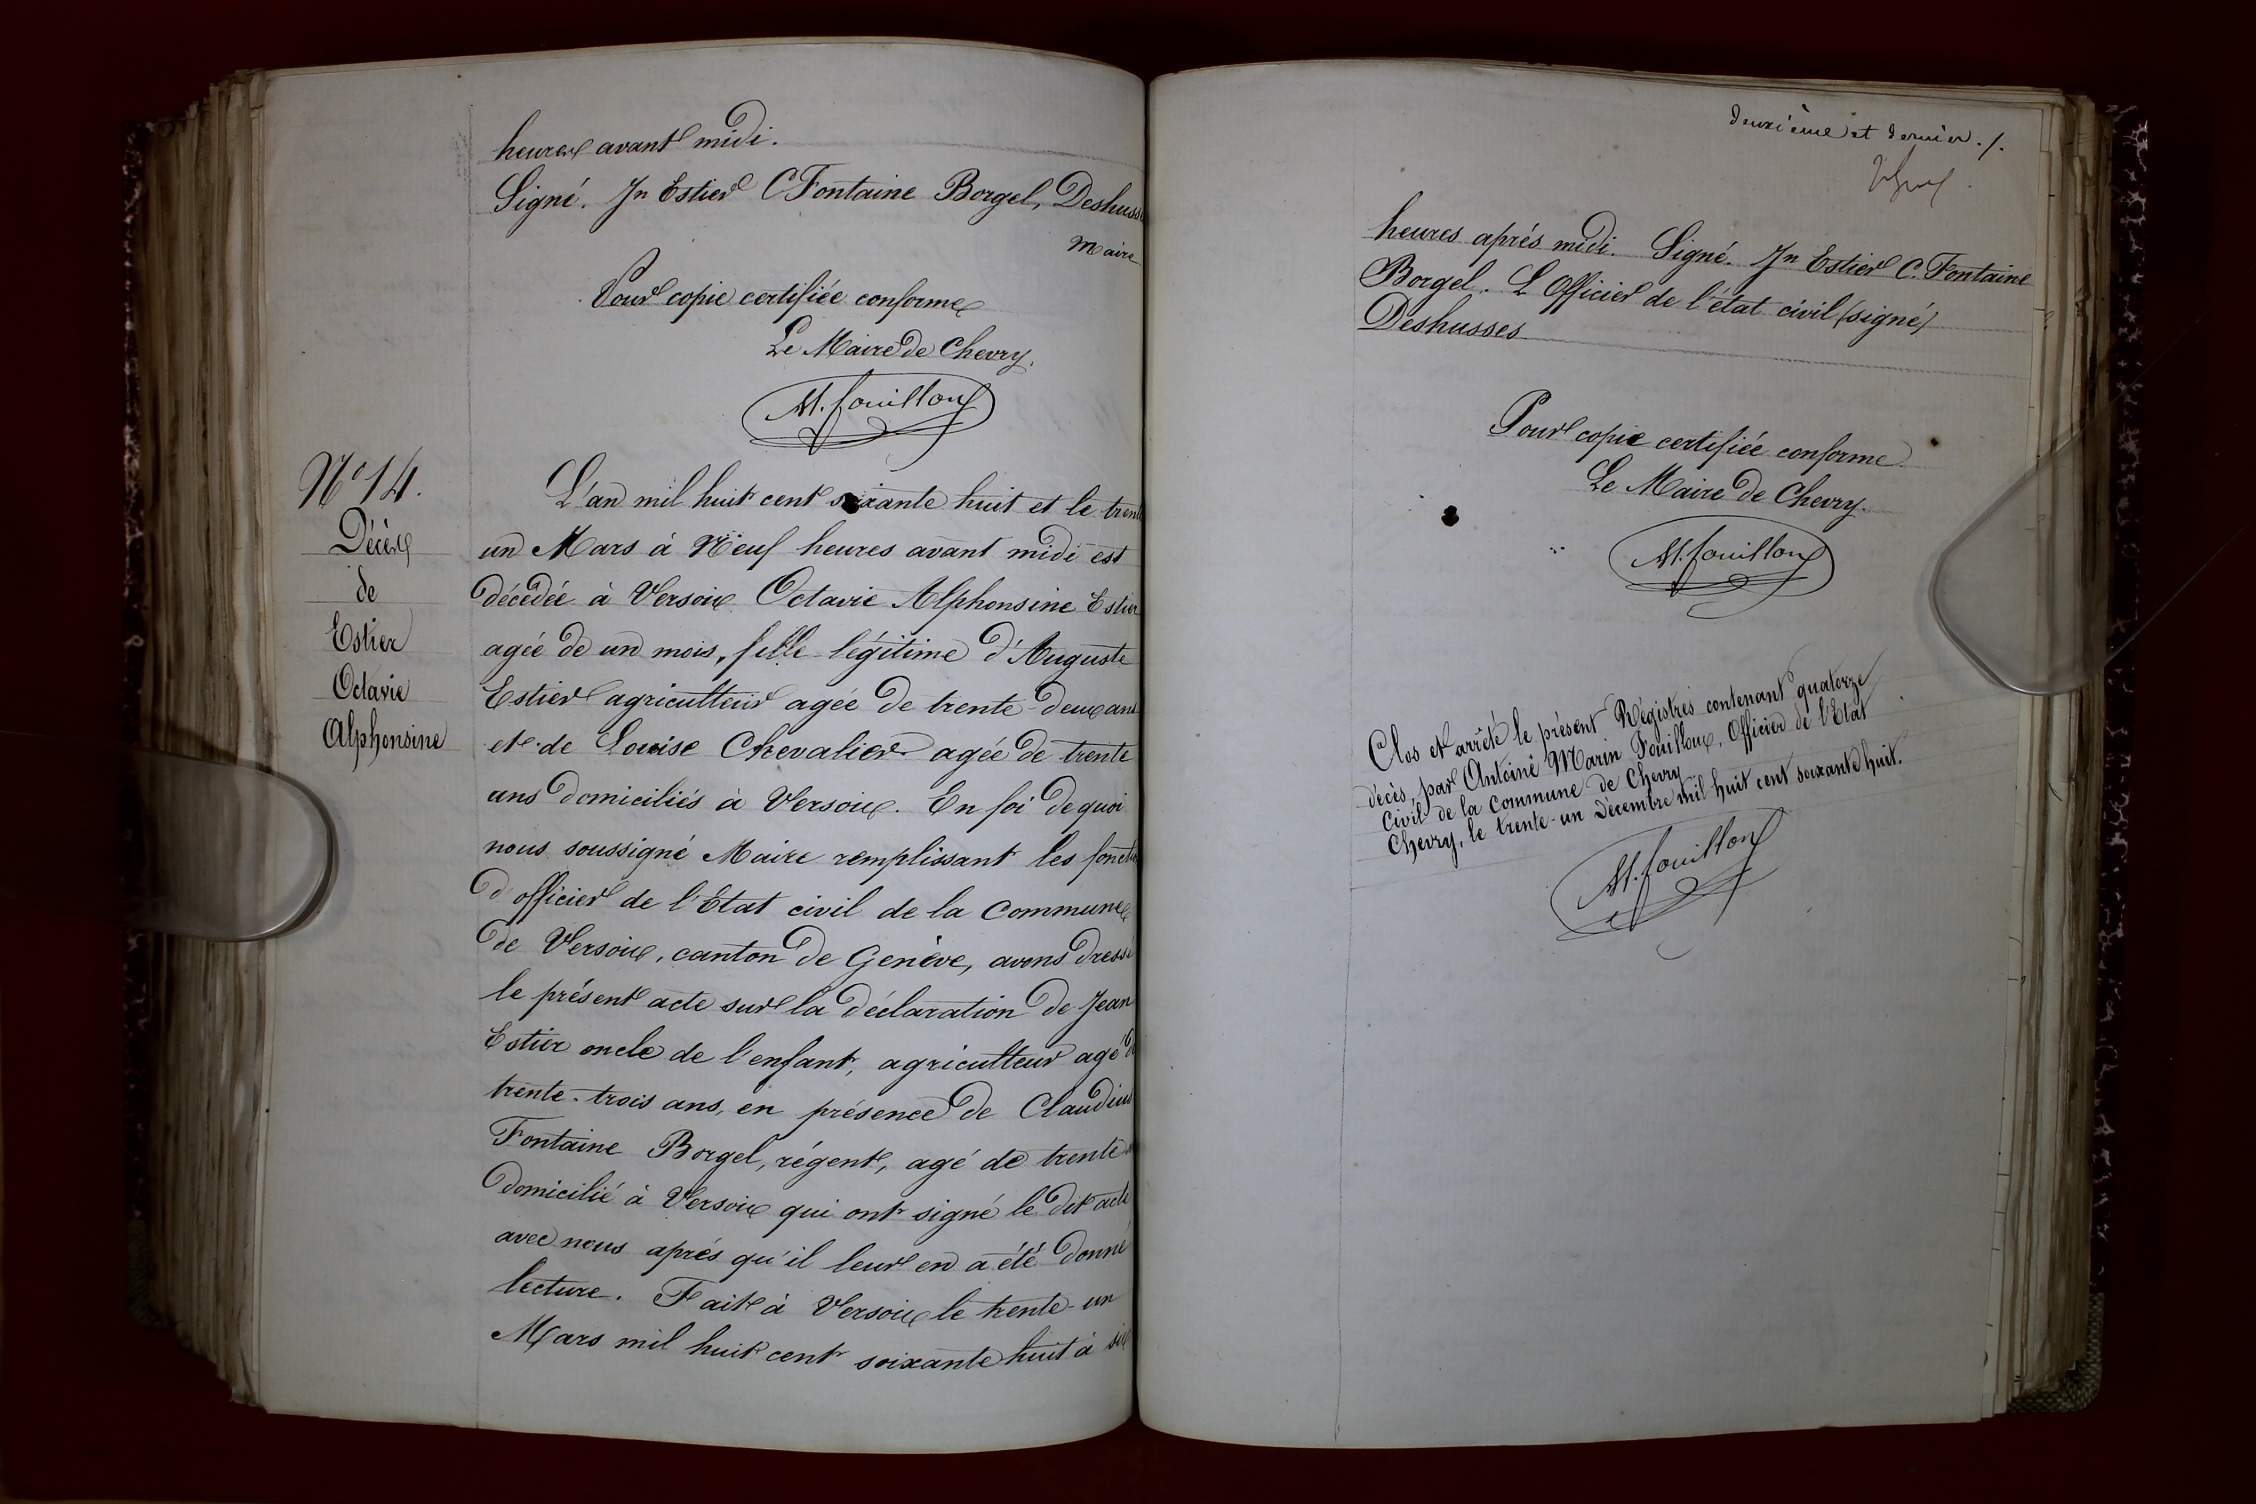 heures avant midi.
Signé. Jn Estier C Fontaine Borgel, Deshusse
Maire
Pour copie certifiée conforme
Le Maire de Chevry.
M. fouilloux
No 14.
Décès
de
Estier
Octavie
Alphonsine
L'an mil huit cent soixante huit et le trente
un Mars à Neuf heures avant midi est
décédée à Versoix Octavie Alphonsine Estier
agée de un mois, fille légitime d'Auguste
Estier agriculteur agée de trente-deux ans
et de Louise Chevalier agée de trente
ans domiciliés à Versoix. En foi de quoi
nous soussigné Maire remplissant les foncti
d'officier de l'Etat civil de la Commune
de Versoix, canton de Genève, avons dressé
le présent acte sur la déclaration de Jean
Estier oncle de l'enfant, agriculteur agé de
trente-trois ans, en présence de Claudius
Fontaine Borgel, régent, agé de trente
domicilié à Versoix qui ont signé le dit acte
avec nous aprés qu'il leur en a été donné
lecture. Fait à Versoix le trente-un
Mars mil huit cent soixante huit à six
deuxième et dernier ./.
heures aprés midi. Signé. Jn Estier C. Fontaine
Borgel. L Officier de l'état civil (signé)
Deshusses
Pour copie certifiée conforme
Le Maire de Chevry.
M. fouilloux
Clos et arrêté le présent Régistres contenant quatorze
décès, par Antoine Marin Fouilloux, Officier de l'Etat
Civil de la Commune de Chevry
Chevry, le trente-un Décembre mil huit cent soixante huit.
M. fouilloux